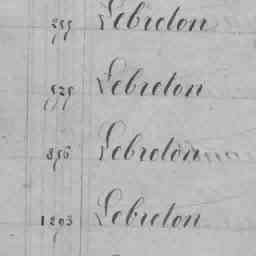 255 Lebreton
525 Lebreton
856 Lebreton
1203 Lebreton